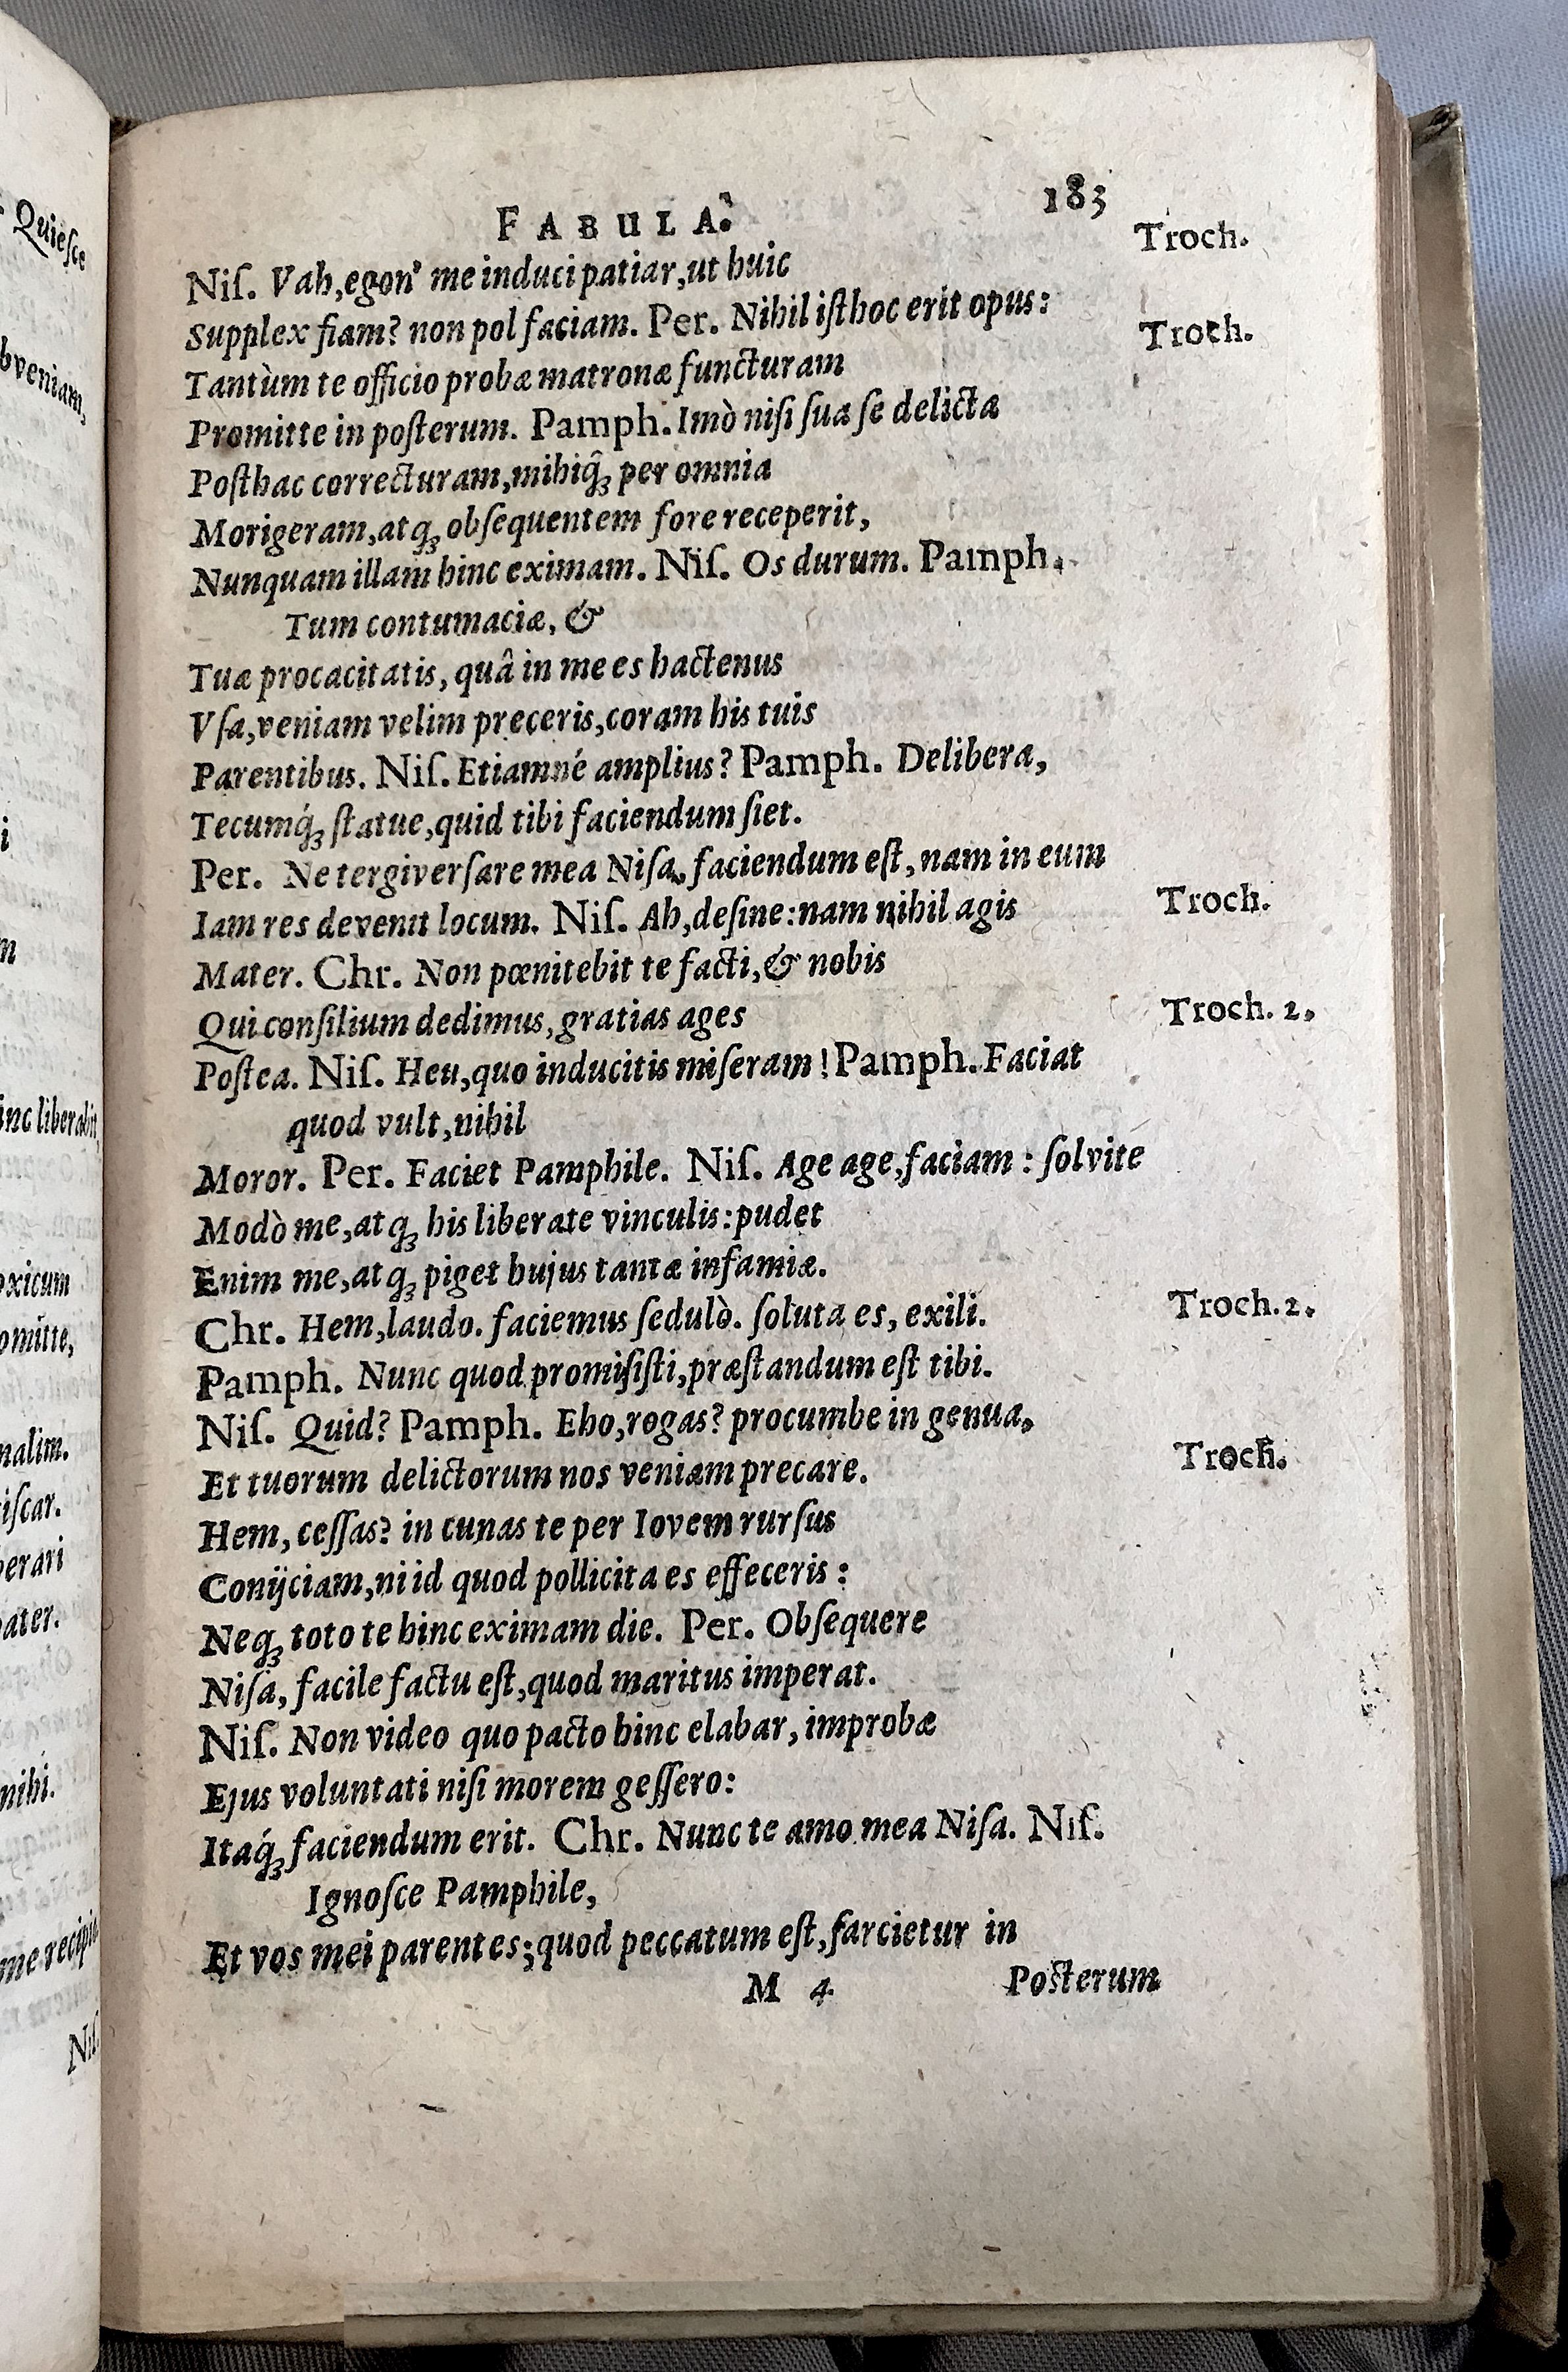 Quiesce
bveniam,
i
inc liberabit,
oxicum
omitte,
malim.
iscar.
berari
pater.
mihi.
me recipia
Nis.
FABULA.
183
Niſ. Vah,egon' me induci patiar,ut huic
Troch.
Supplex fiam? non pol faciam. Per. Nihil iſthoc erit opus:
Tantùm te officio probæ matronæ functuram
Troch.
Promitte in poſterum. Pamph. Imò niſi ſua ſe delicta
Poſthac correcturam,mihiq́ꝫ per omnia
Morigeram,atqꝫ obſequentem fore receperit,
Nunquam illam hinc eximam. Niſ. Os durum. Pamph.
Tum contumaciæ, &
Tuæ procacitatis, quâ in me es hactenus
Vſa,veniam velim preceris,coram his tuis
Parentibus. Niſ. Etiamné amplius? Pamph. Delibera,
Tecumq́ꝫ ſtatue,quid tibi faciendum ſiet.
Per. Ne tergiverſare mea Niſa, faciendum eſt, nam in eum
Iam res devenit locum. Niſ. Ah,deſine:nam nihil agis
Troch.
Mater. Chr. Non pœnitebit te facti,& nobis
Qui conſilium dedimus,gratias ages
Troch. 2.
Poſtea. Niſ. Heu,quo inducitis miſeram! Pamph. Faciat
quod vult,nihil
Moror. Per. Faciet Pamphile. Niſ. Age age,faciam : ſolvite
Modò me,atqꝫ his liberate vinculis:pudet
Enim me,atqꝫ piget hujus tantæ infamiæ.
Chr. Hem,laudo. faciemus ſedulò. ſoluta es, exili.
Troch. 2.
Pamph. Nunc quod promiſiſti,præſtandum eſt tibi.
Niſ. Quid? Pamph. Eho,rogas? procumbe in genua,
Et tuorum delictorum nos veniam precare.
Troch.
Hem, ceſſas? in cunas te per Iovem rurſus
Conijciam,ni id quod pollicita es effeceris :
Neqꝫ toto te hinc eximam die. Per. Obſequere
Niſa, facile factu eſt,quod maritus imperat.
Niſ. Non video quo pacto hinc elabar, improbæ
Ejus voluntati niſi morem geſſero:
Itaq́ꝫ faciendum erit. Chr. Nunc te amo mea Niſa. Niſ.
Ignoſce Pamphile,
Et vos mei parentes;quod peccatum eſt,ſarcietur in
M 4
Poſterum